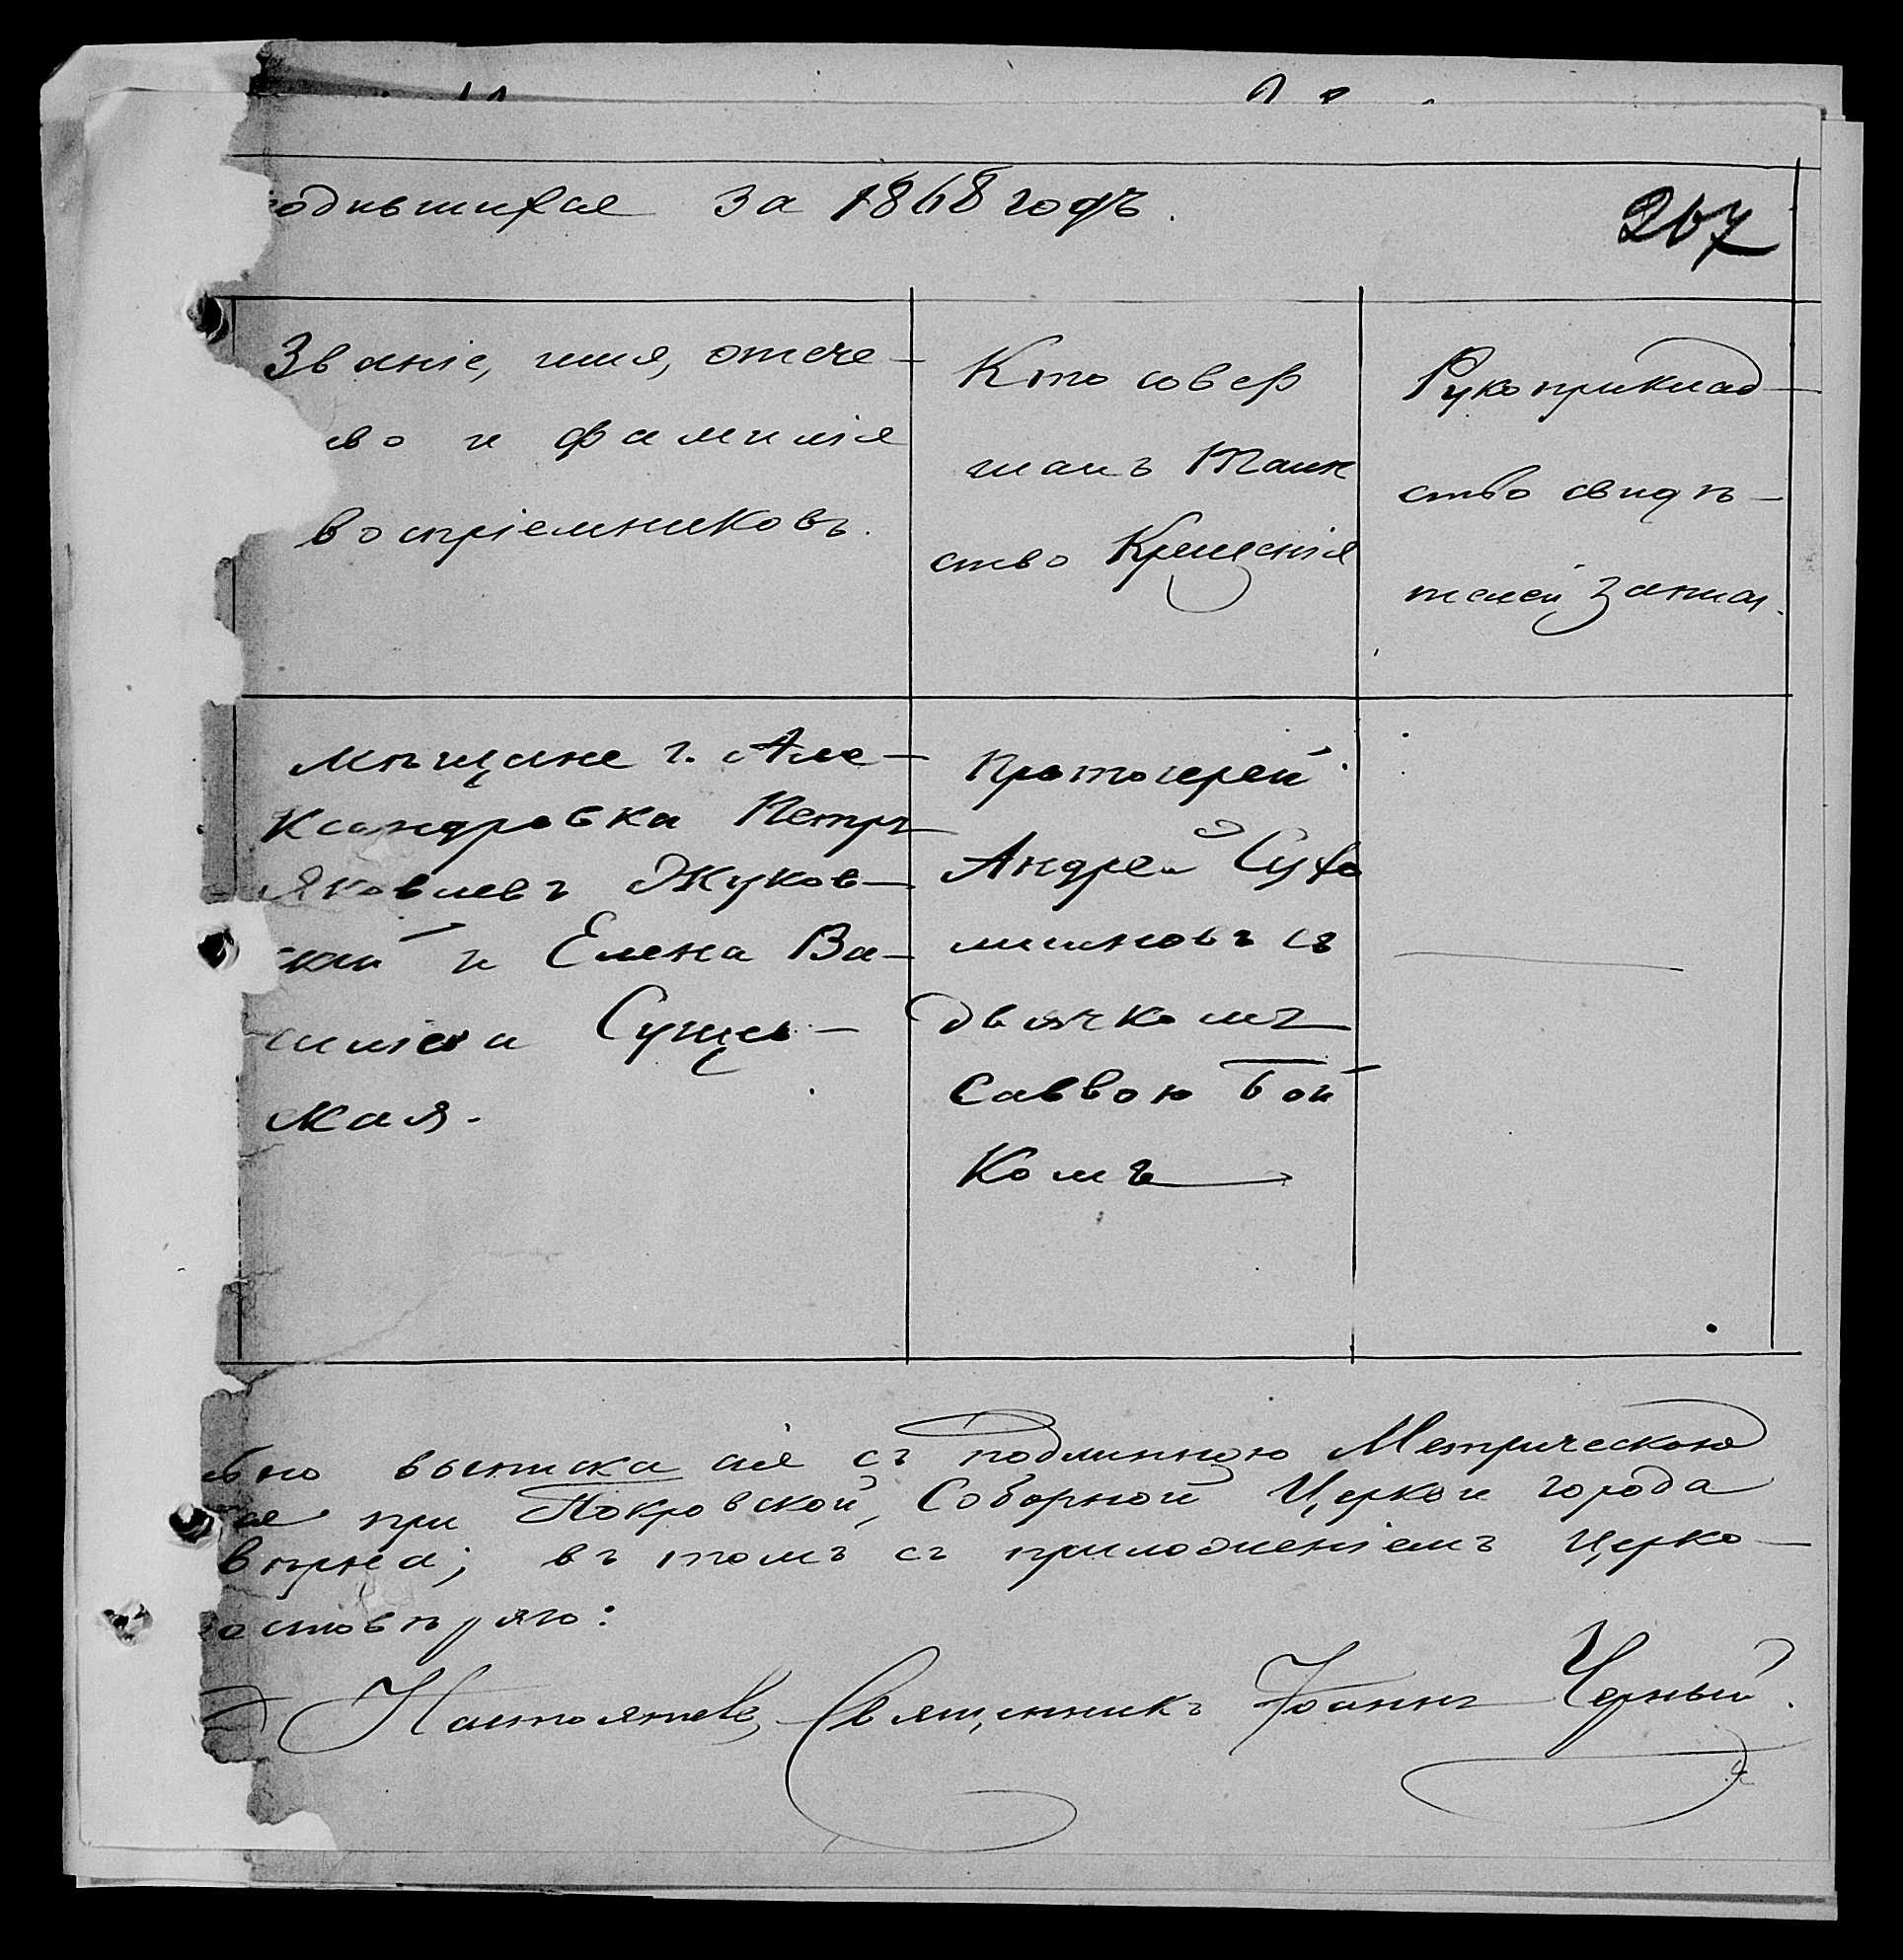 одившихся за 1868 годъ.
207
Званіе, имя, отече-
во и фамилія
воспріемниковъ.
Кто совер
шалъ Таин
ство Крещенія
Рукоприклад-
ство свидѣ-
телей запис.
Мѣщане г. Але-
ксандровка Петръ
Яковлевъ Жуков-
скій и Елена Ва-
силіева
кая.
Протоіерей
Андрей Сухо
млиновъ съ
дьячкомъ
Саввою Бой
комъ
выписка сія съ подлинною Метрическою
при Покровской Соборной Церкви города
вѣрна; въ томъ съ приложеніемъ церко-
остовѣряю:
Настоятель, Священникъ Іоаннъ Черный.